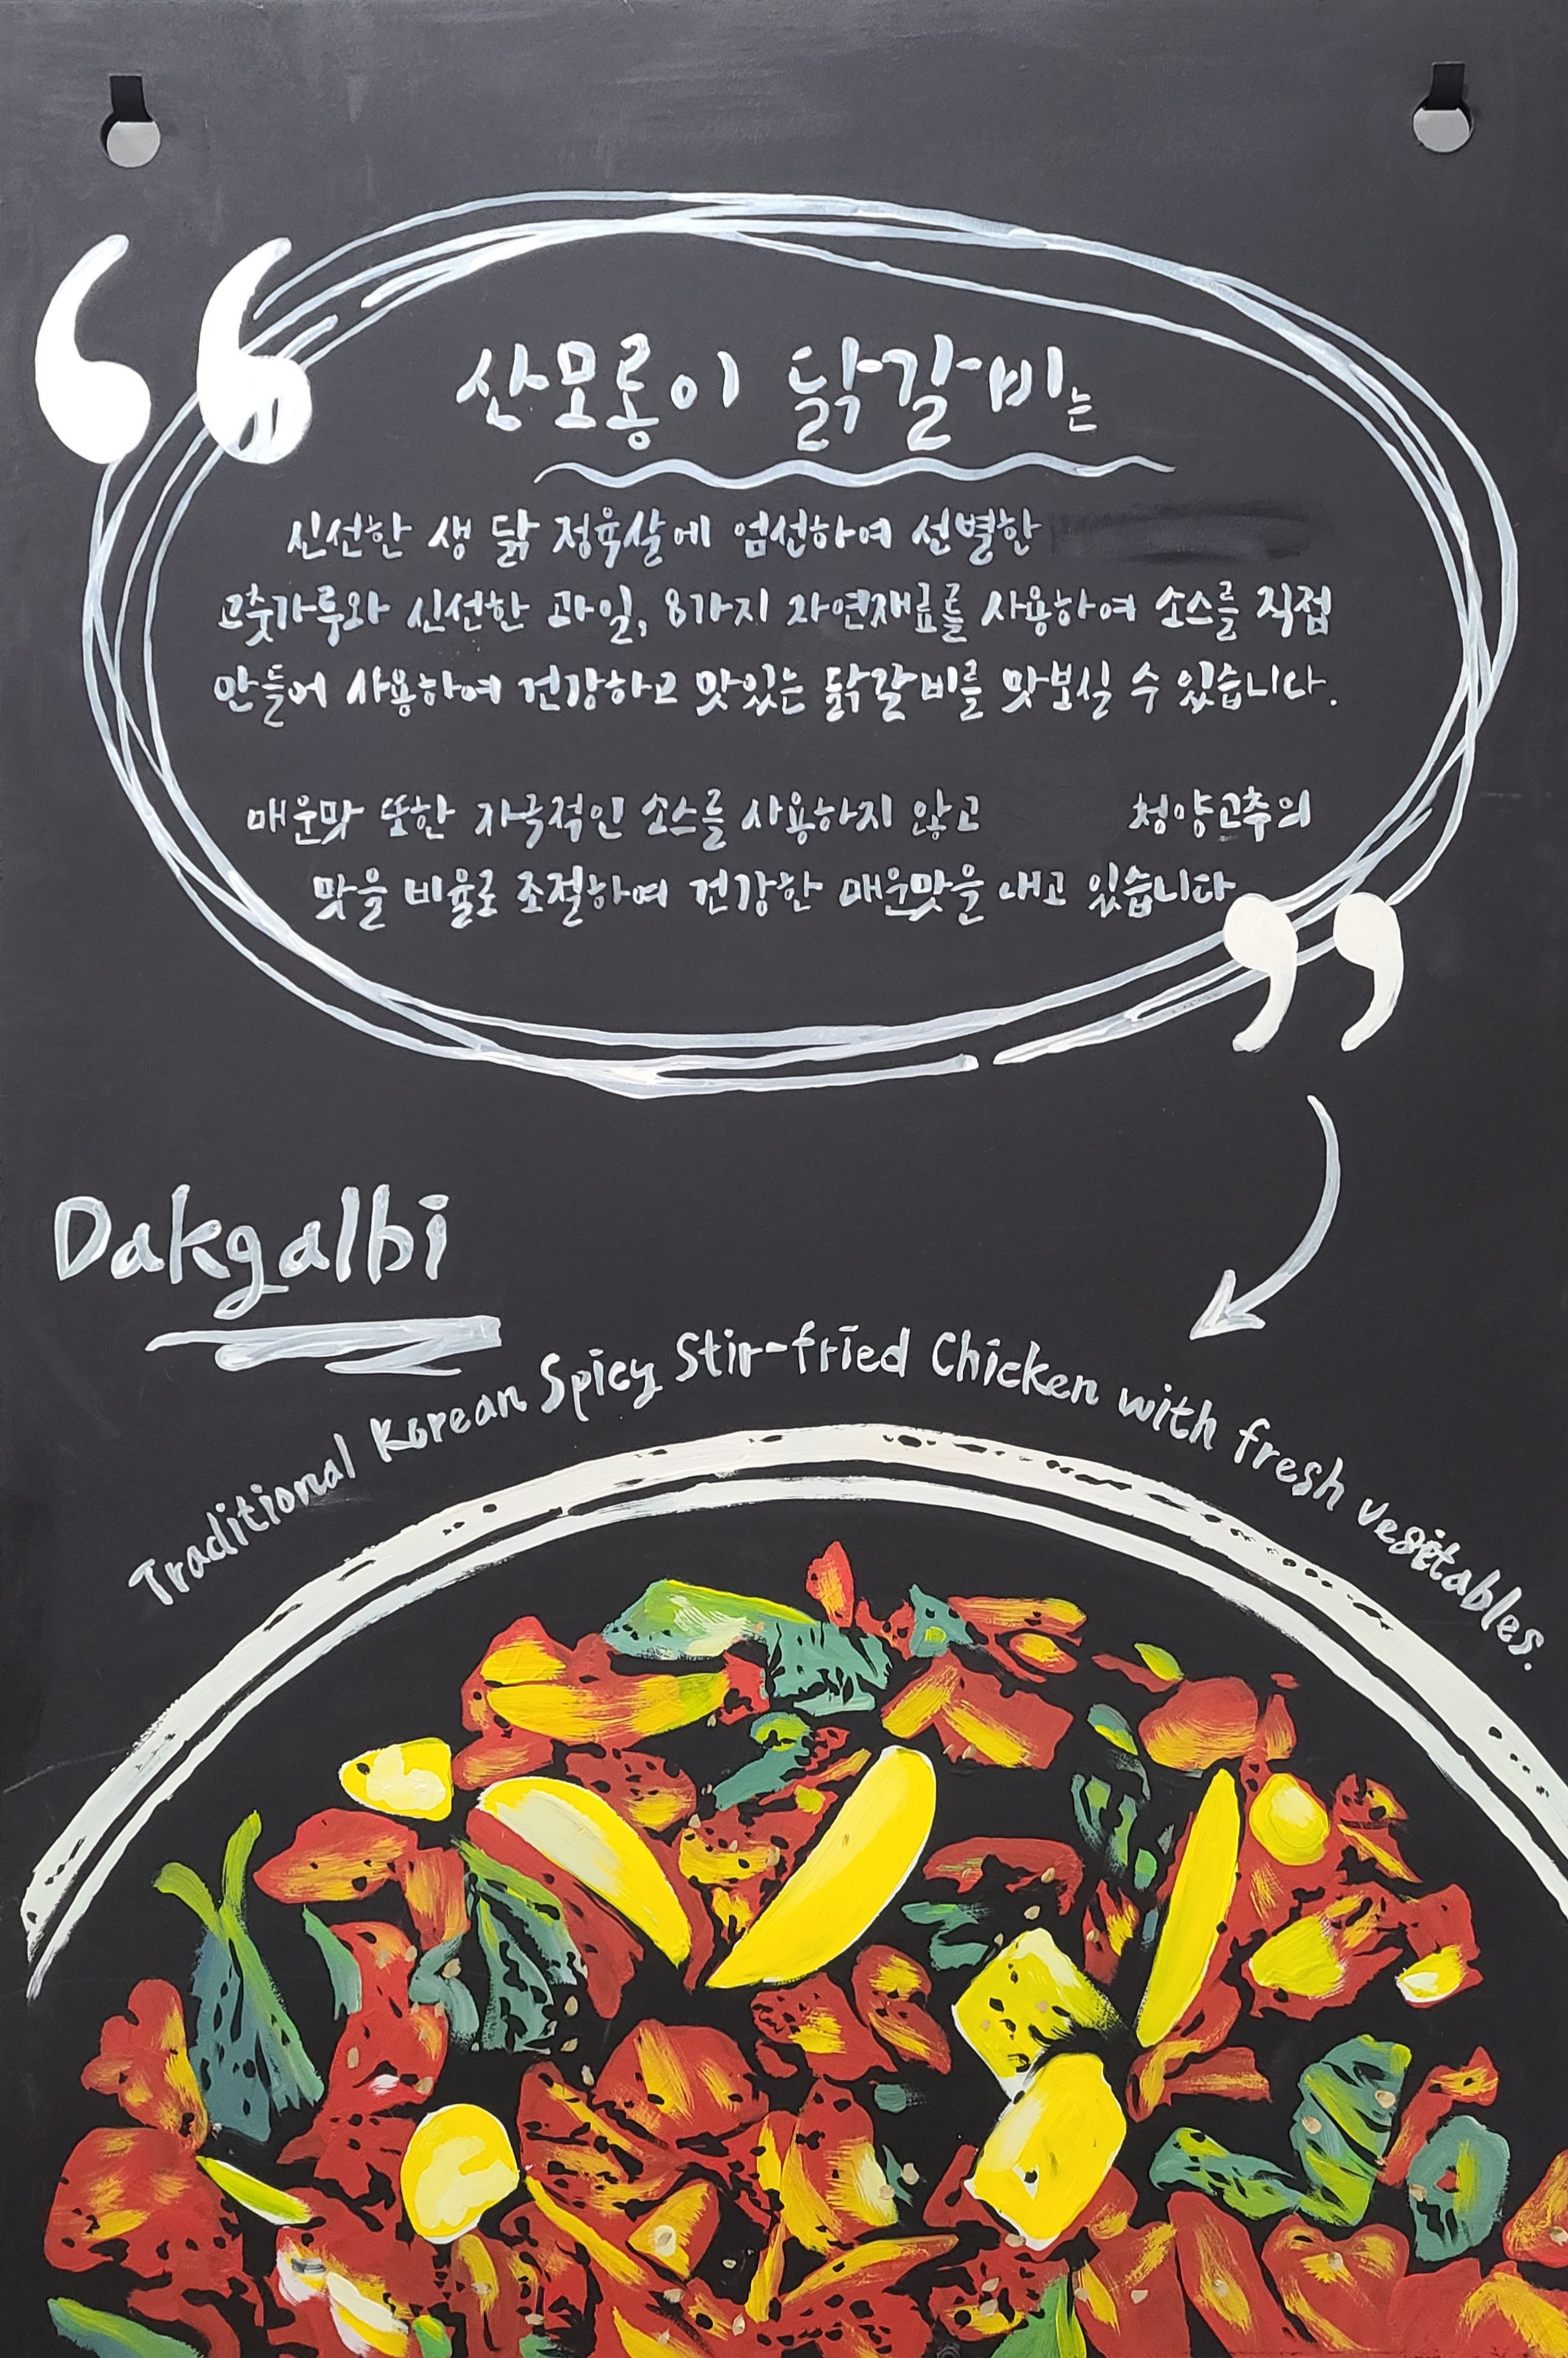 산모롱이 닭갈비는
신선한 생 닭 정육살에 엄선하여 선별한
고춧가루와 신선한 과일, 8가지 자연재료를 사용하여 소스를 직접
만들어 사용하여 건강하고 맛있는 닭갈비를 맛보실 수 있습니다.
매운맛 또한 자극적인 소스를 사용하지 않고 청양고추의
맛을 비율로 조절하여 건강한 매운맛을 내고 있습니다
Dakgalbi
Traditional Korean Spicy Stir-fried Chicken with fresh vegetables.